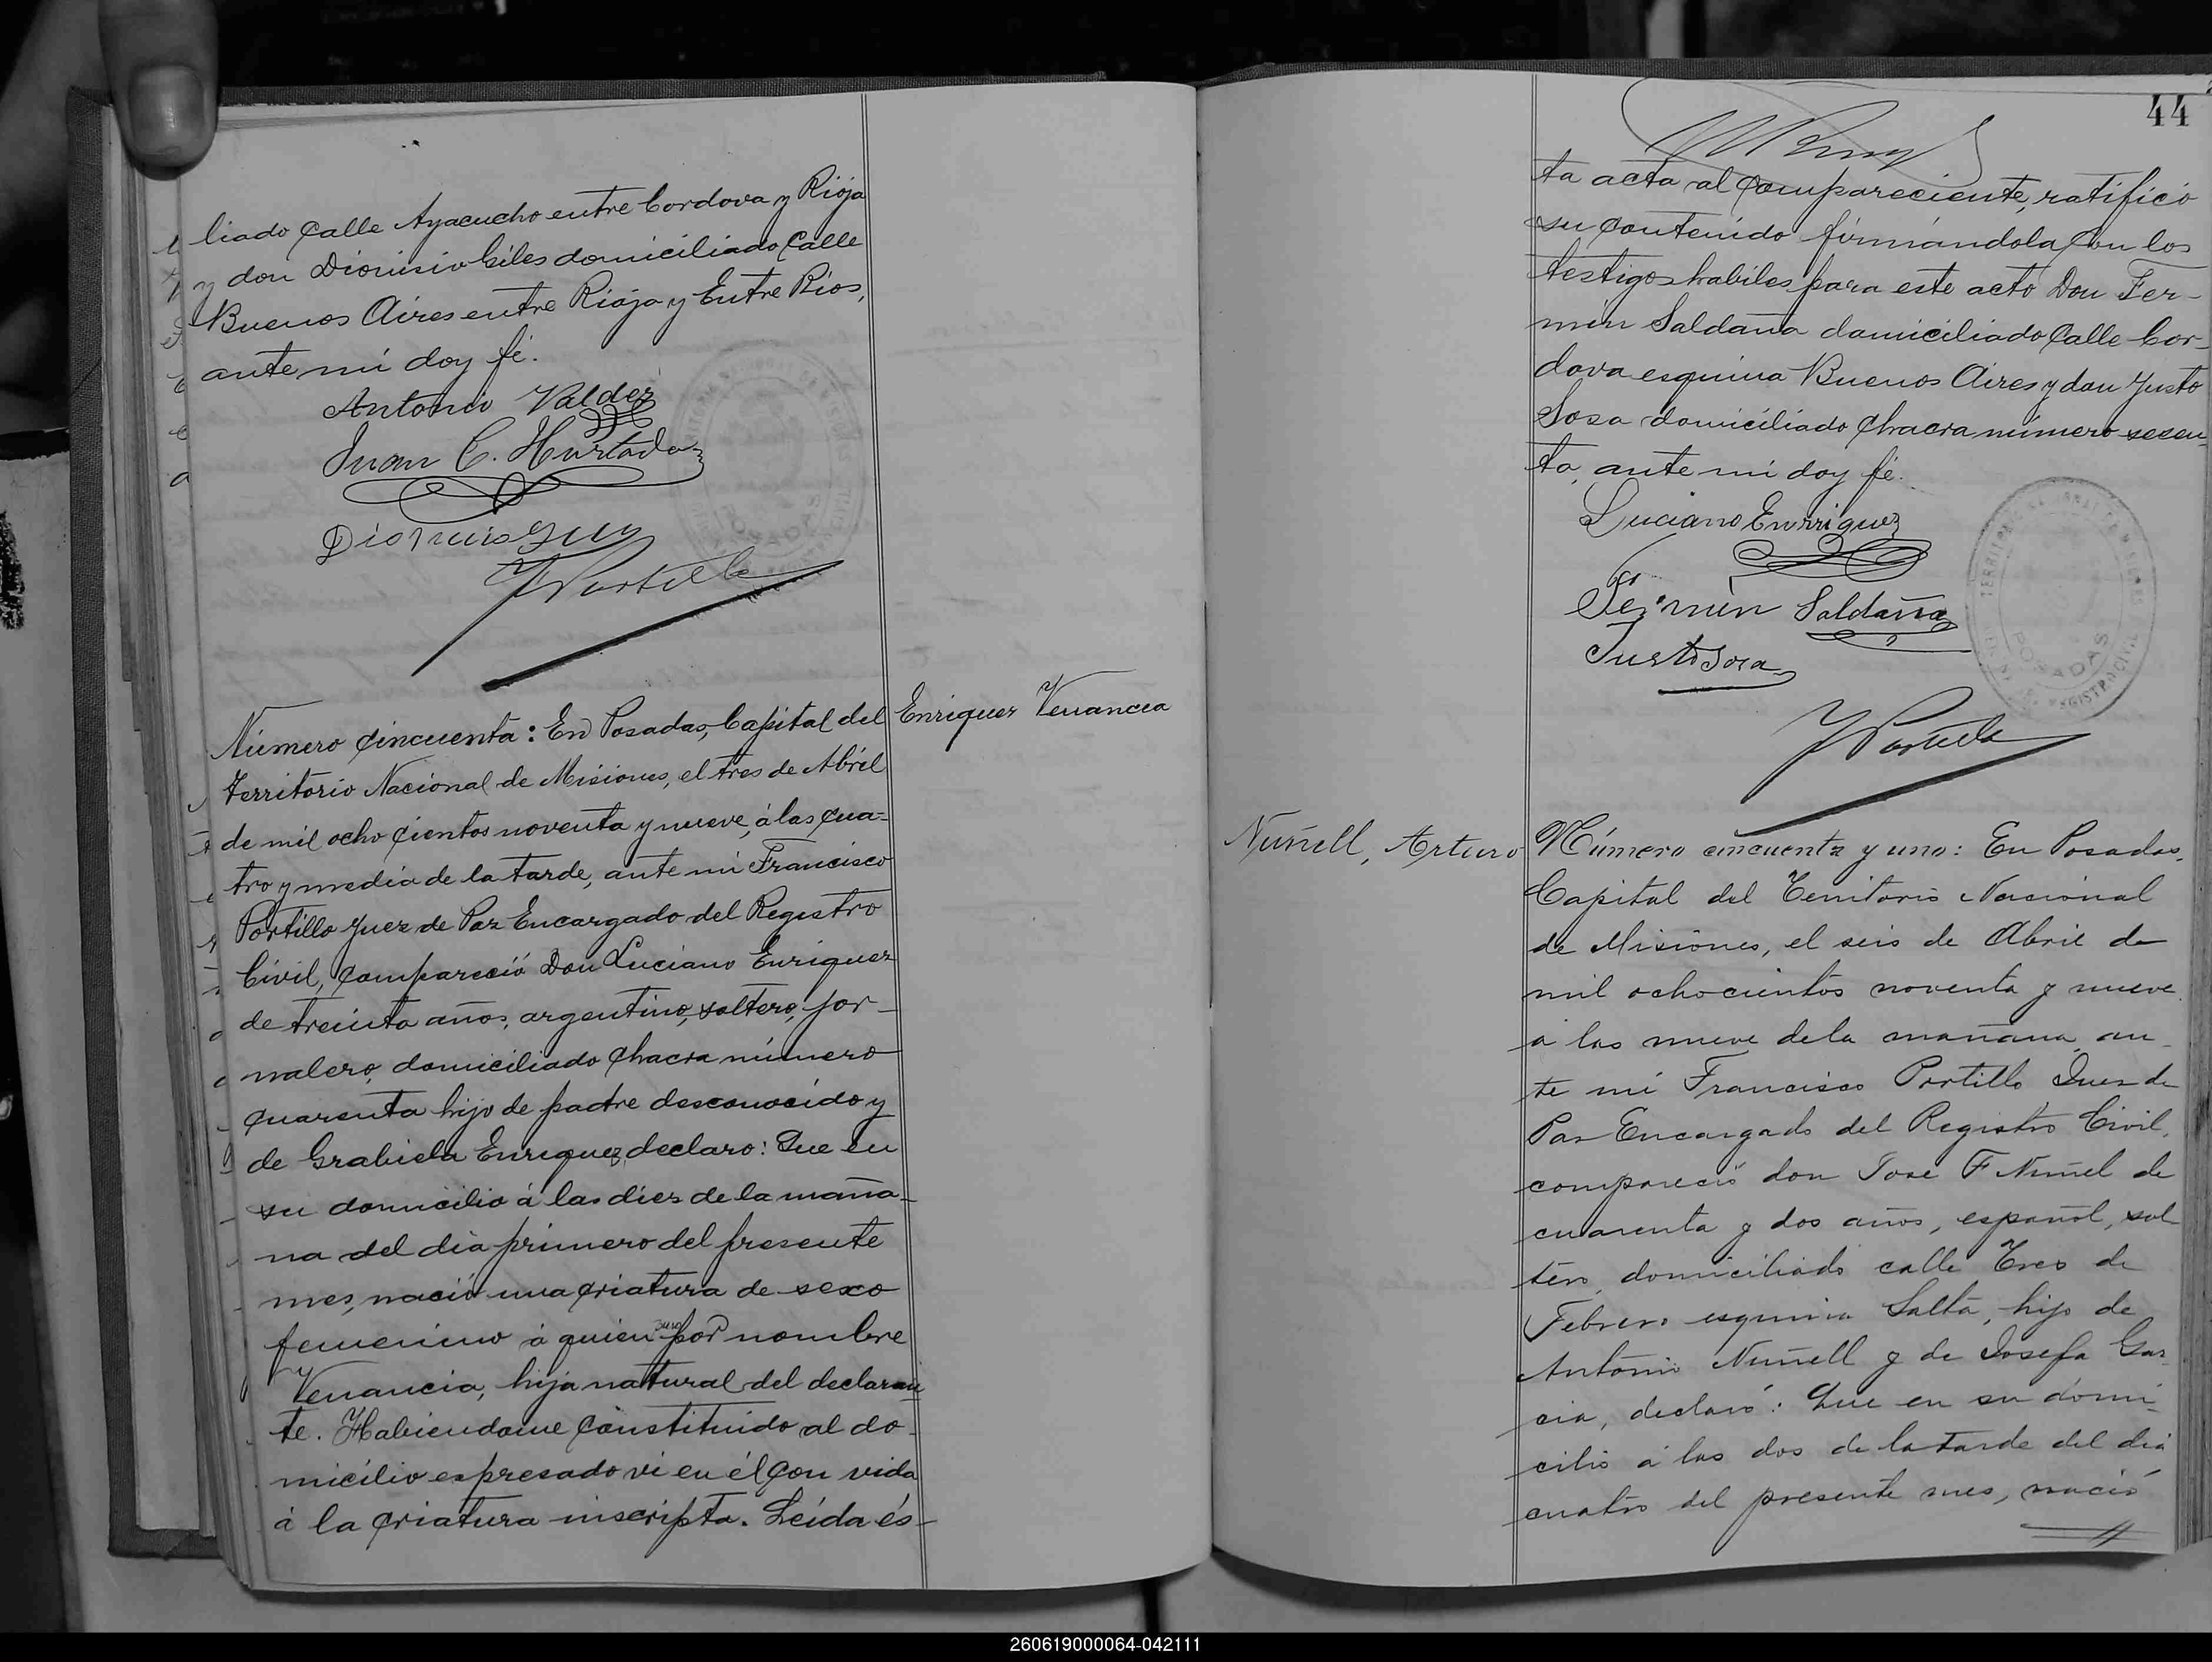 liado Calle Ayacucho entre Cordova y Rioja
y don Dionisio Giles domiciliado Calle
Buenos Aires entre Rioja y Entre Rios,
ante mi doy fé.
Antonio Valdez
Juan C. Hurtado
Dionisio
F Portillo
Número cincuenta: En Posadas, Capital del
Enriquez Venancia
Territorio Nacional de Misiones, el tres de Abril
de mil ocho cientos noventa y nueve, á las cua-
tro y media de la tarde, ante mi Francisco
Portillo Juez de Paz Encargado del Registro
Civil, compareció Don Luciano Enriquez
de treinta años, argentino, soltero, jor-
nalero, domiciliado chacra número
cuarenta hijo de padre desconocido y
de Grabiela Enriquez, declaro: Que en
su domicilio á las diez de la maña-
na del dia primero del presente
mes, nació una criatura de sexo
femenino á quien puso por nombre
Venancia, hija natural del declaran-
te. Habiendome constituido al do-
micilio espresado vi en él con vida
á la criatura inscripta. Leída és-
44
ta acta al compareciente, ratificó
su contenido firmándola con los
testigos habiles para este acto Don Fer-
min Saldaña domiciliado Calle Cor-
dova esquina Buenos Aires y don Justo
Sosa domiciliado chacra número sesen-
ta, ante mi doy fé.
Luciano Enrriquez
Fermin Saldaña
Justo Sosa
POSADAS
F Portillo
Nuñell, Arturo
Número cincuenta y uno: En Posadas,
Capital del Territorio Nacional
de Misiones, el seis de Abril de
mil ochocientos noventa y nueve
a las nueve de la mañana, an-
te mi Francisco Portillo Juez de
Paz Encargado del Registro Civil,
compareció don José F Nuñel de
cuarenta y dos años, español, sol-
tero, domiciliado calle Tres de
Febrero esquina Salta, hijo de
Antonio Nuñell y de Josefa Gar-
cia, declaró: Que en su domi-
cilio á las dos de la tarde del dia
cuatro del presente mes, nació
260619000064-042111